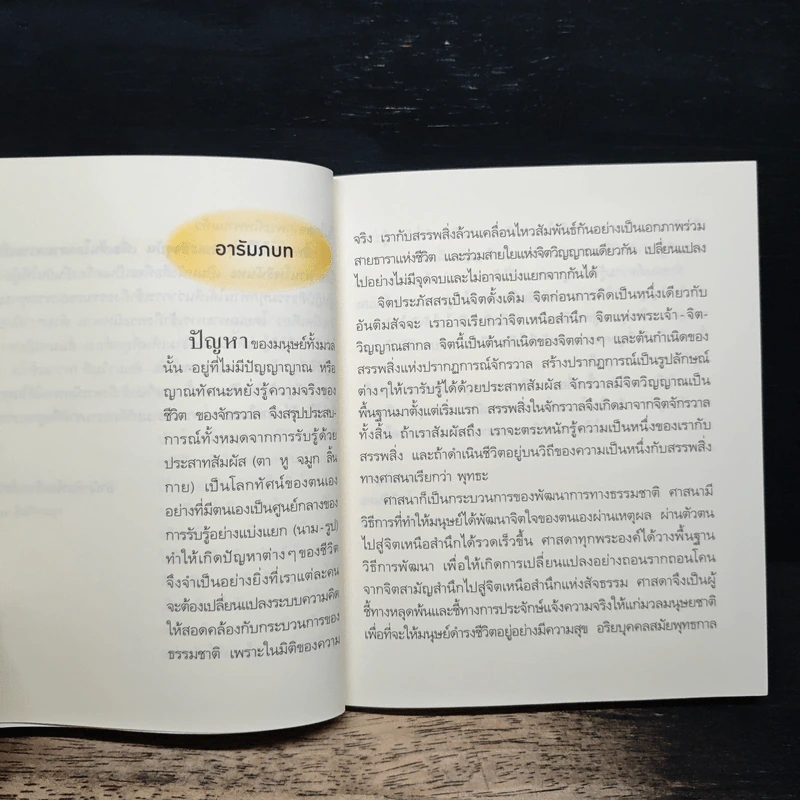 อารัมภบท
ปัญหา ของมนุษย์ทั้งมวล
นั้น อยู่ที่ไม่มีปัญญาญาณ หรือ
ญาณทัศนะหยั่งรู้ความจริงของ
ชีวิต ของจักรวาล จึงสรุปประสบ-
การณ์ทั้งหมดจากการรับรู้ด้วย
ประสาทสัมผัส (ตา หู จมูก ลิ้น
กาย) เป็นโลกทัศน์ของตนเอง
อย่างที่มีตนเองเป็นศูนย์กลางของ
การรับรู้อย่างแบ่งแยก (นาม-รูป)
ทำให้เกิดปัญหาต่างๆ ของชีวิต
จึงจำเป็นอย่างยิ่งที่เราแต่ละคน
จะต้องเปลี่ยนแปลงระบบความคิด
ให้สอดคล้องกับกระบวนการของ
ธรรมชาติ เพราะในมิติของความ
จริง เรากับสรรพสิ่งล้วนเคลื่อนไหวสัมพันธ์กันอย่างเป็นเอกภาพร่วม
สายธาราแห่งชีวิต และร่วมสายใยแห่งจิตวิญญาณเดียวกัน เปลี่ยนแปลง
ไปอย่างไม่มีจุดจบและไม่อาจแบ่งแยกจากกันได้
จิตประภัสสรเป็นจิตดั้งเดิม จิตก่อนการคิดเป็นหนึ่งเดียวกับ
อันติมสัจจะ เราอาจเรียกว่าจิตเหนือสำนึก จิตแห่งพระเจ้า-จิต-
วิญญาณสากล จิตนี้เป็นต้นกำเนิดของจิตต่างๆ และต้นกำเนิดของ
สรรพสิ่งแห่งปรากฏการณ์จักรวาล สร้างปรากฏการณ์เป็นรูปลักษณ์
ต่างๆให้เรารับรู้ได้ด้วยประสาทสัมผัส จักรวาลมีจิตวิญญาณเป็น
พื้นฐานมาตั้งแต่เริ่มแรก สรรพสิ่งในจักรวาลจึงเกิดมาจากจิตจักรวาล
ทั้งสิ้น ถ้าเราสัมผัสถึง เราจะตระหนักรู้ความเป็นหนึ่งของเรากับ
สรรพสิ่ง และถ้าดำเนินชีวิตอยู่บนวิถีของความเป็นหนึ่งกับสรรพสิ่ง
ทางศาสนาเรียกว่า พุทธะ
ศาสนาก็เป็นกระบวนการของพัฒนาการทางธรรมชาติ ศาสนามี
วิธีการที่ทำให้มนุษย์ได้พัฒนาจิตใจของตนเองผ่านเหตุผล ผ่านตัวตน
ไปสู่จิตเหนือสำนึกได้รวดเร็วขึ้น ศาสดาทุกพระองค์ได้วางพื้นฐาน
วิธีการพัฒนา เพื่อให้เกิดการเปลี่ยนแปลงอย่างถอนรากถอนโคน
จากจิตสามัญสำนึกไปสู่จิตเหนือสำนึกแห่งสัจธรรม ศาสดาจึงเป็นผู้
ชี้ทางหลุดพ้นและชี้ทางการประจักษ์แจ้งความจริงให้แก่มวลมนุษยชาติ
เพื่อที่จะให้มนุษย์ดำรงชีวิตอยู่อย่างมีความสุข อริยบุคคลสมัยพุทธกาล